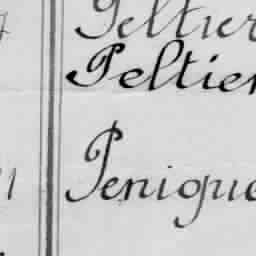 Peltier
Peltier
Penigue